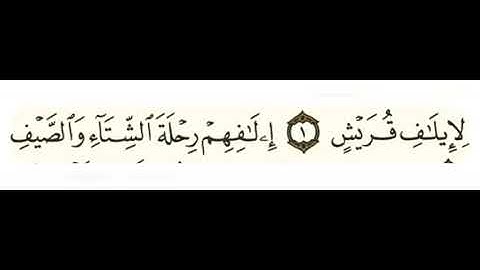 لِإِيلَٰفِ قُرَيۡشٍ ١ إِۦلَٰفِهِمۡ رِحۡلَةَ ٱلشِّتَآءِ وَٱلصَّيۡفِ